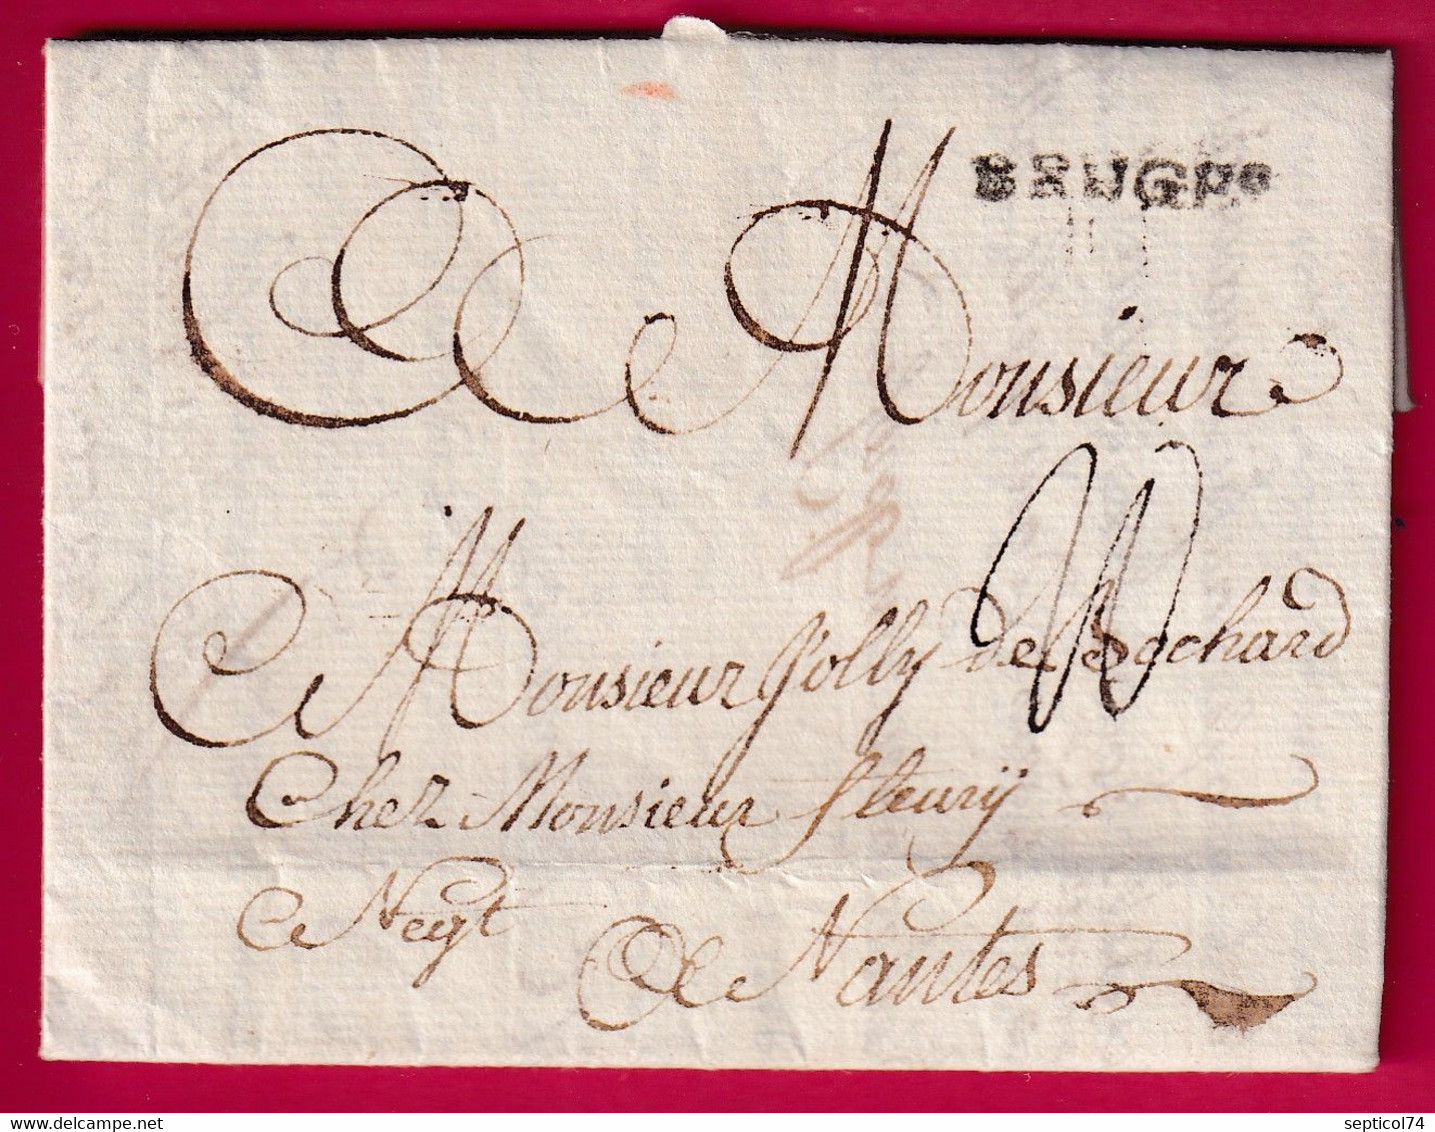 BRUGES
Monsieur
Monsieur Jolly de Bochard
Chez Monsieur fleurÿ
Negt
A Nantes
delcampe.net
septicol74